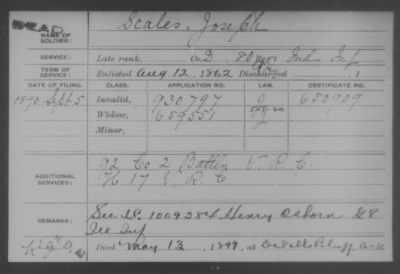 DEAD
NAME OF SOLDIER: Scales, Joseph
SERVICE: Late rank, Co. D, 80 Regt Ind Inf
TERM OF SERVICE: Enlisted Aug 12, 1862 Discharged , 1
DATE OF FILING. CLASS. APPLICATION NO. LAW. CERTIFICATE NO.
1890 Sept 5 Invalid, 930797 J 650909
Widow, 689551
Minor,
ADDITIONAL SERVICES: 92 Co 2 Battn V.R.C.
H 17 V.R.C
REMARKS: See 1009384 Henry Osborn
Inf
Died May 13, 1899, at DeValls Bluff Ark